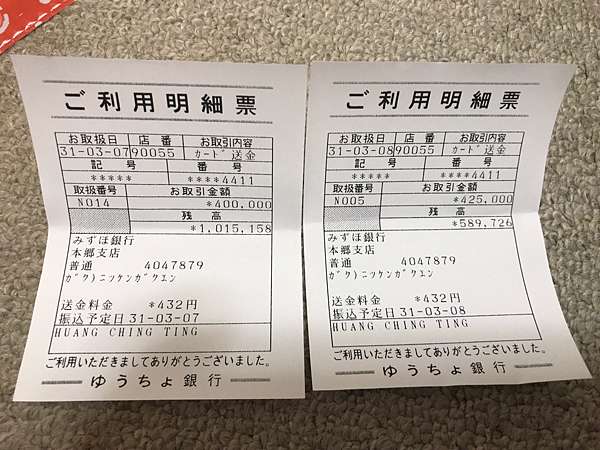 ご利用明細票
お取扱日 店番 お取引内容
31-03-07 90055 カード送金
記号 番号
***** ****4411
取扱番号 お取引金額
N014 *400,000
残高
*1,015,158
みずほ銀行
本郷支店
普通 4047879
ガク)ニッケンガクエン
送金料金 *432円
振込予定日31-03-07
HUANG CHING TING
ご利用いただきましてありがとうございました。
ゆうちょ銀行
ご利用明細票
お取扱日 店番 お取引内容
31-03-08 90055 カード送金
記号 番号
***** ****4411
取扱番号 お取引金額
N005 *425,000
残高
*589,726
みずほ銀行
本郷支店
普通 4047879
ガク)ニッケンガクエン
送金料金 *432円
振込予定日31-03-08
HUANG CHING TING
ご利用いただきましてありがとうございました。
ゆうちょ銀行